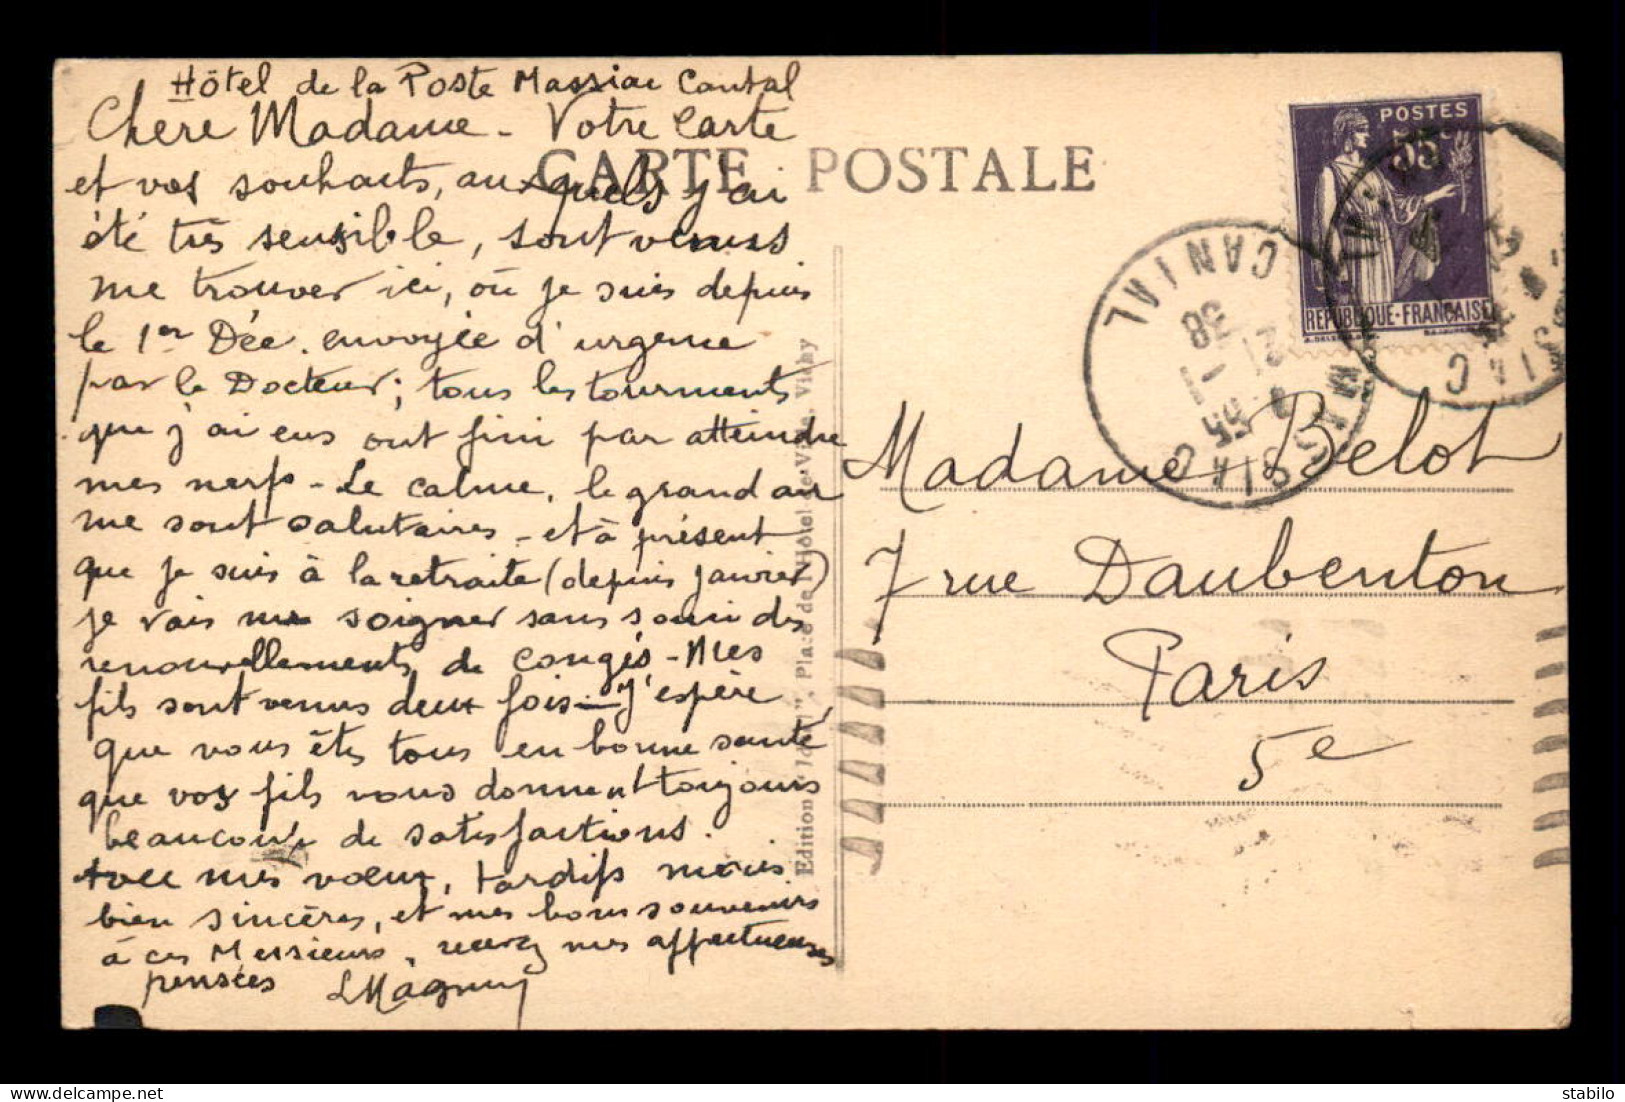 Hôtel de la Poste Massiac Cantal
Chere Madame - Votre carte
et vos souhaits, auxquels j'ai
été très sensible, sont venus
me trouver ici, où je suis depuis
le 1er Déc. envoyée d'urgence
par le Docteur; tous les tourments
que j'ai eus ont fini par atteindre
mes nerfs - Le calme, le grand air
me sont salutaires - et à présent
que je suis à la retraite (depuis janvier)
je vais me soigner sans souci des
renouvellements de congés - Mes
fils sont venus deux fois - J'espère
que vous êtes tous en bonne santé
que vos fils vous donnent toujours
beaucoup de satisfactions.
Avec mes vœux, tardifs mais
bien sincères, et mes bons souvenirs
à ces Messieurs, recevez mes affectueuses
pensées LMagny
CARTE POSTALE
Edition "Idéal", Place de l'Hôtel-de-Ville, Vichy
POSTES
55c
REPUBLIQUE-FRANÇAISE
MASSIAC
CANTAL
21 - 1
38
MASSIAC
Madame Belot
7 rue Daubenton
Paris
5e
stabilo